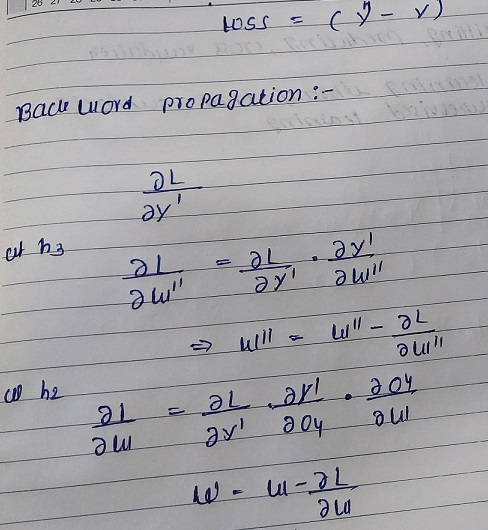 Loss = (y' - y)
Backword propagation :-
∂L/∂y'
at h3
∂L/∂w'' = ∂L/∂y' . ∂y'/∂w''
⇒ w'' = w'' - ∂L/∂w''
at h2
∂L/∂w = ∂L/∂y' . ∂y'/∂O4 . ∂O4/∂w
w = w - ∂L/∂w